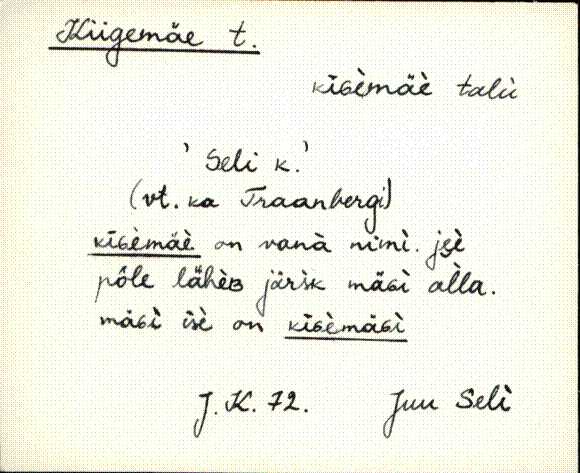 Kiigemäe t.
kīɢèmäè talù
' Seli k.'
(vt. ka Traanbergi)
kīɢèmäè on vanà nimì. jȩè
pôle lähèʙ järìsk mäɢì àlla.
mäɢì isè on kīɢèmäɢì
J. K. 72. Juu Selì